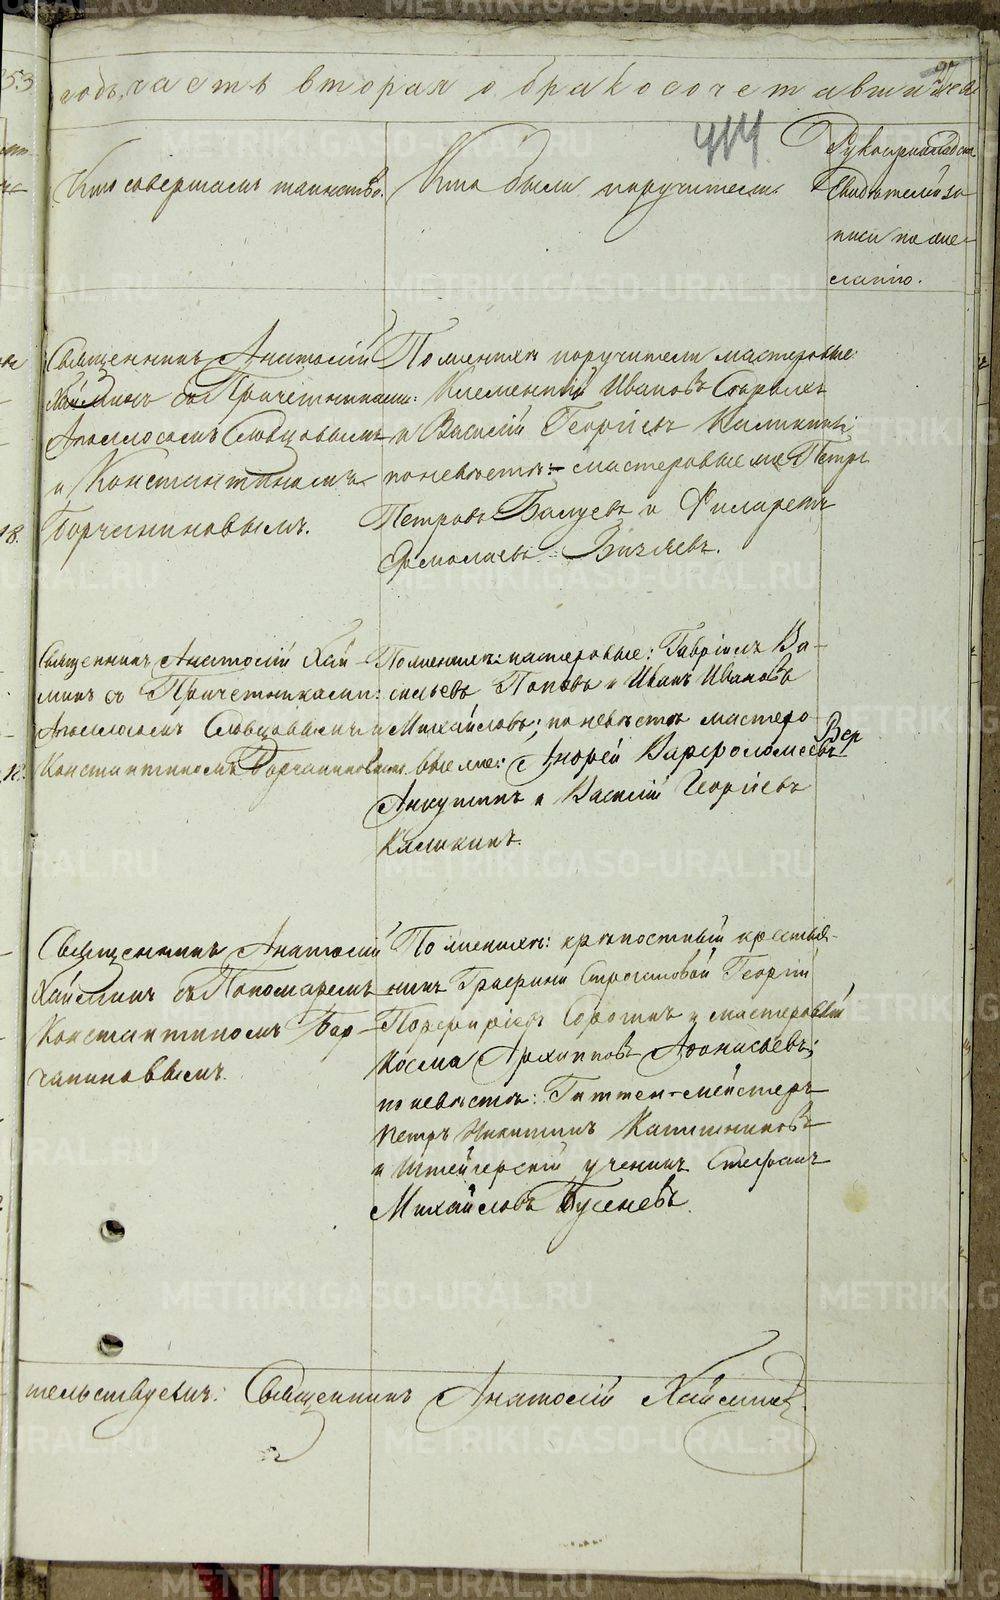 годъ, часть вторая о бракосочетавшихся
414
Кто совершалъ таинство.
Кто были поручители
Рукоприкладст.
свидѣтелей за-
писи по же-
ланію.
Священникъ Анатолій
Хайминъ съ Причетниками:
Аполлосомъ Словцовымъ
и Константиномъ
Борчаниновымъ.
По женихѣ поручители мастеровые:
Климентій Ивановъ
и Василій Георгіевъ Каликинъ;
по невѣстѣ: мастеровые же Петръ
Петровъ Балуевъ и Филаретъ
Ермолаевъ
Священникъ Анатолій Хай-
минъ съ Причетниками:
Аполлосомъ Словцовымъ и
Константиномъ Борчаниновымъ.
По женихѣ: мастеровые: Гавріилъ Ва-
сильевъ Поповъ и Иванъ Ивановъ
Михайловъ; по невѣстѣ мастеро-
вые же: Андрей Варфоломеевъ
Анкушинъ и Василій Георгіевъ
Каликинъ.
Вер
Священникъ Анатолій
Хайминъ съ Пономаремъ
Константиномъ Бор-
чаниновымъ.
По женихѣ: крѣпостный крестья-
нинъ Графини Строгановой Георгій
Порфирьевъ Сорокинъ и мастеровый
Косма Архиповъ Афонасьевъ;
по невѣстѣ: Гиттен-мейстеръ
Петръ Никитинъ Калашниковъ
и Штейгерскій ученикъ Стефанъ
Михайловъ Гусеневъ.
тельствуемъ: Священникъ Анатолій Хайминъ.
METRIKI.GASO-URAL.RU